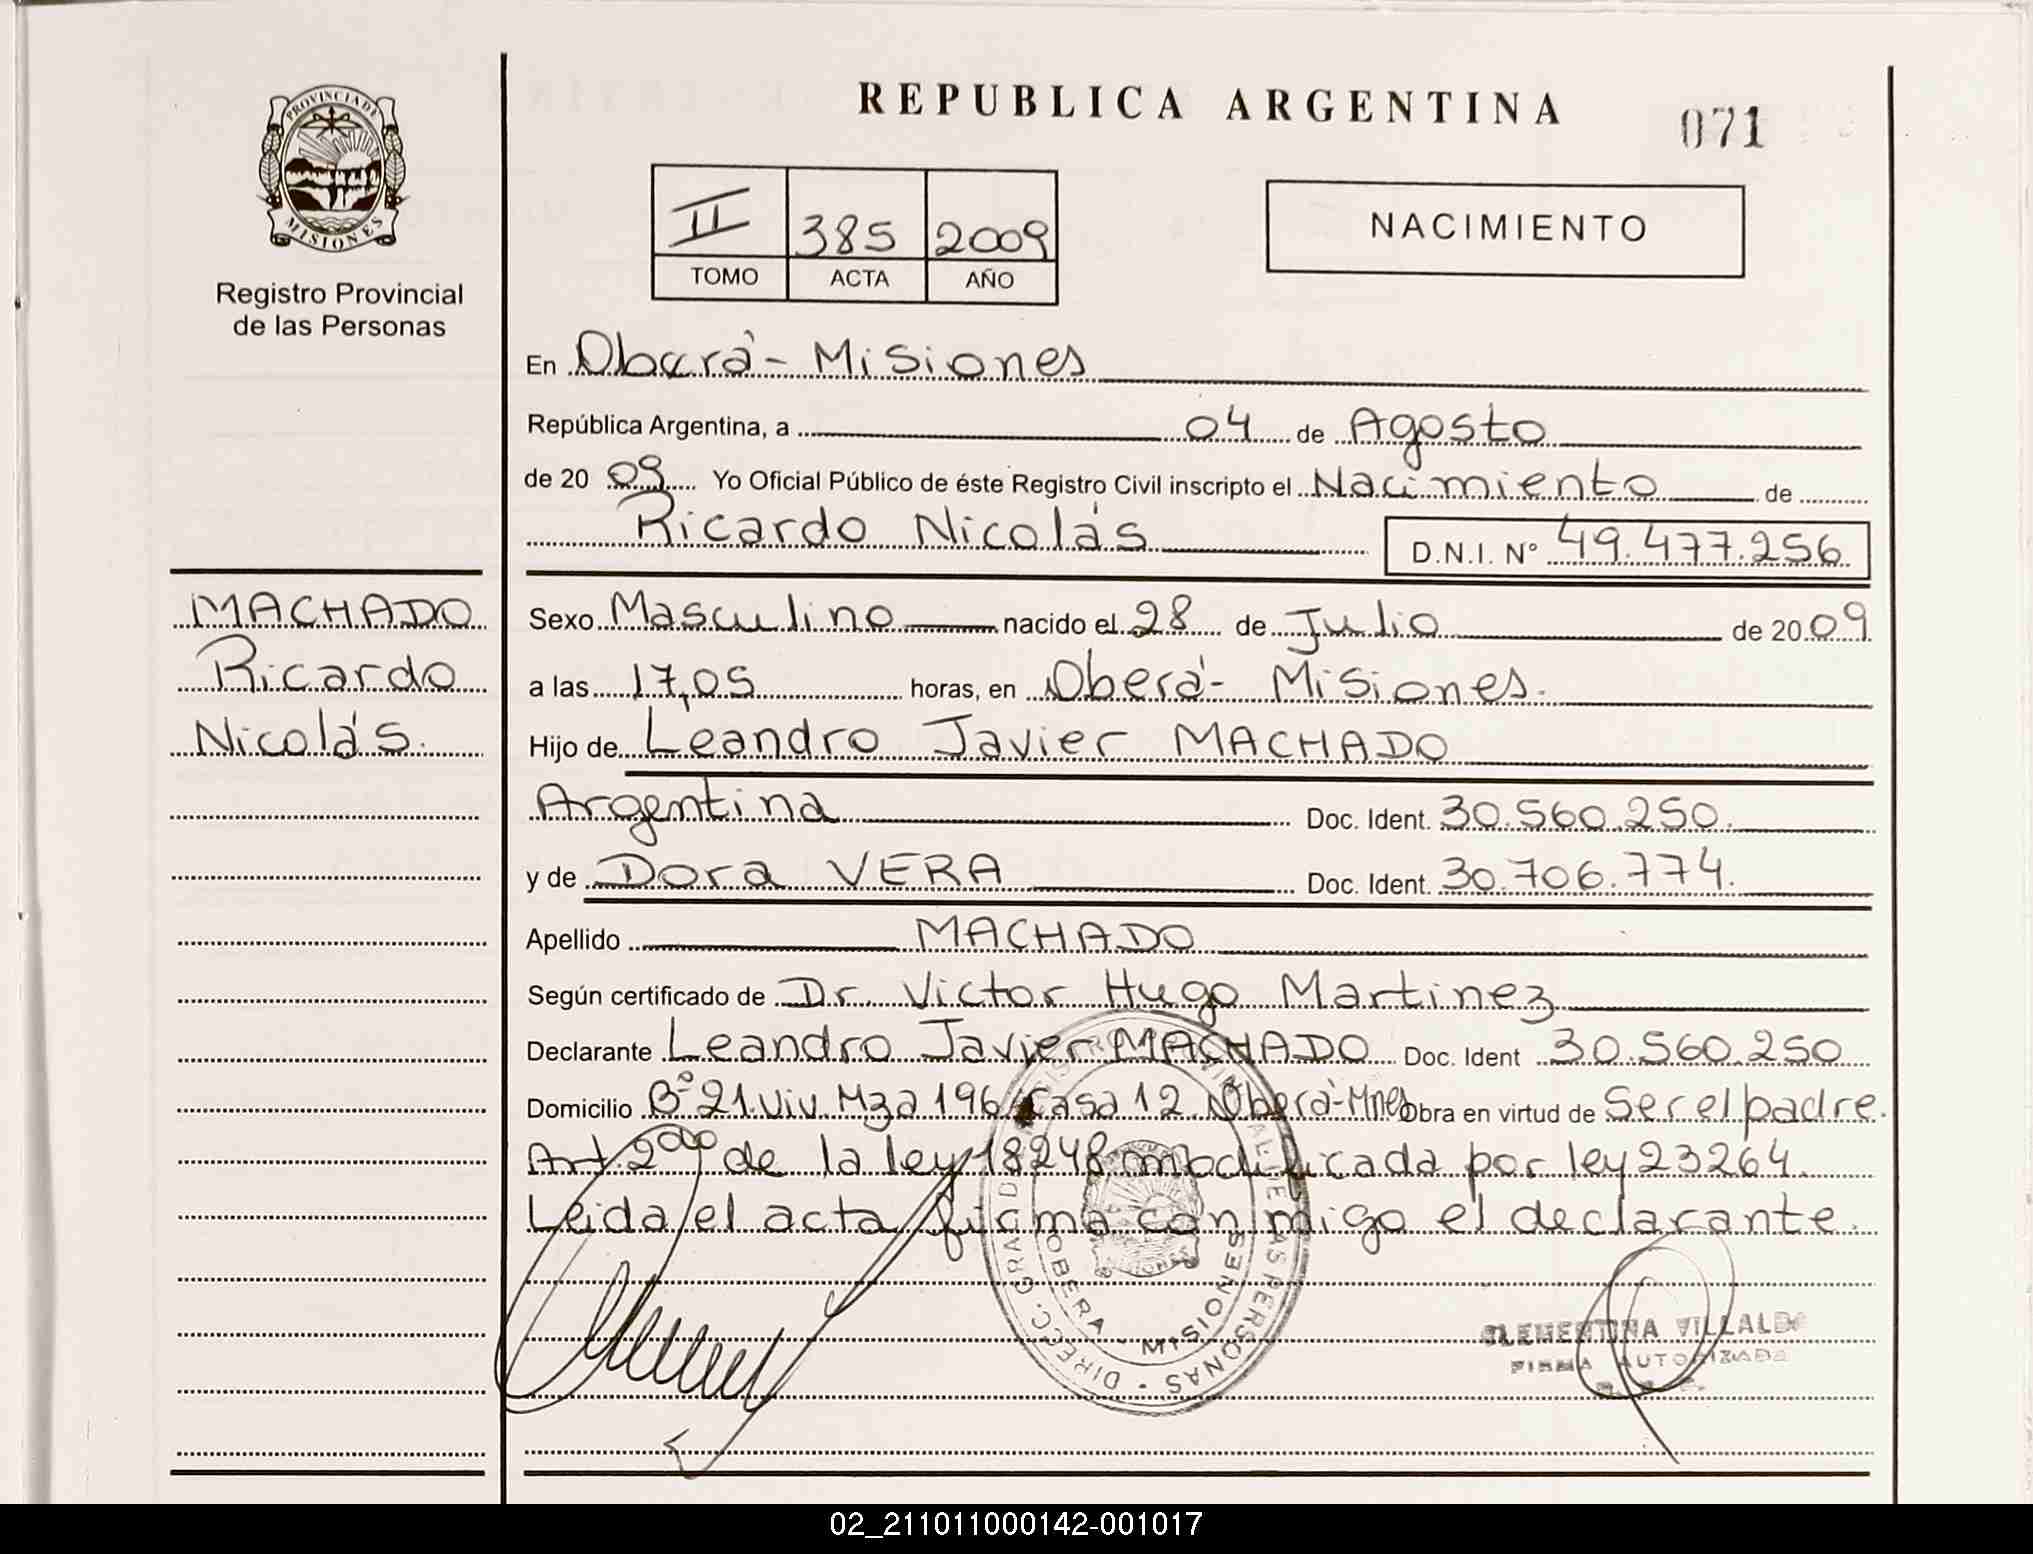 REPUBLICA ARGENTINA
071
PROVINCIA DE
MISIONES
Registro Provincial
de las Personas
II 385 2009
TOMO ACTA AÑO
NACIMIENTO
En Oberá - Misiones
República Argentina, a 04 de Agosto
de 20 09 Yo Oficial Público de éste Registro Civil inscripto el Nacimiento de
Ricardo Nicolás D.N.I. Nº 49.477.256
MACHADO
Ricardo
Nicolás.
Sexo Masculino nacido el 28 de Julio de 2009
a las 17,05 horas, en Oberá - Misiones.
Hijo de Leandro Javier MACHADO
Argentina Doc. Ident. 30.560.250.
y de Dora VERA Doc. Ident. 30.706.774.
Apellido MACHADO
Según certificado de Dr. Victor Hugo Martinez
Declarante Leandro Javier MACHADO Doc. Ident 30.560.250
Domicilio Bº 21 Viv. Mza 196 Casa 12 Oberá-Mnes Obra en virtud de Ser el padre.
Art. 2do de la ley 18248 modificada por ley 23264.
Leida el acta firma conmigo el declarante.
DIRECC. GRAL DE LAS PERSONAS
OBERA - MISIONES
CLEMENTINA VILLALBA
FIRMA AUTORIZADA
02_211011000142-001017